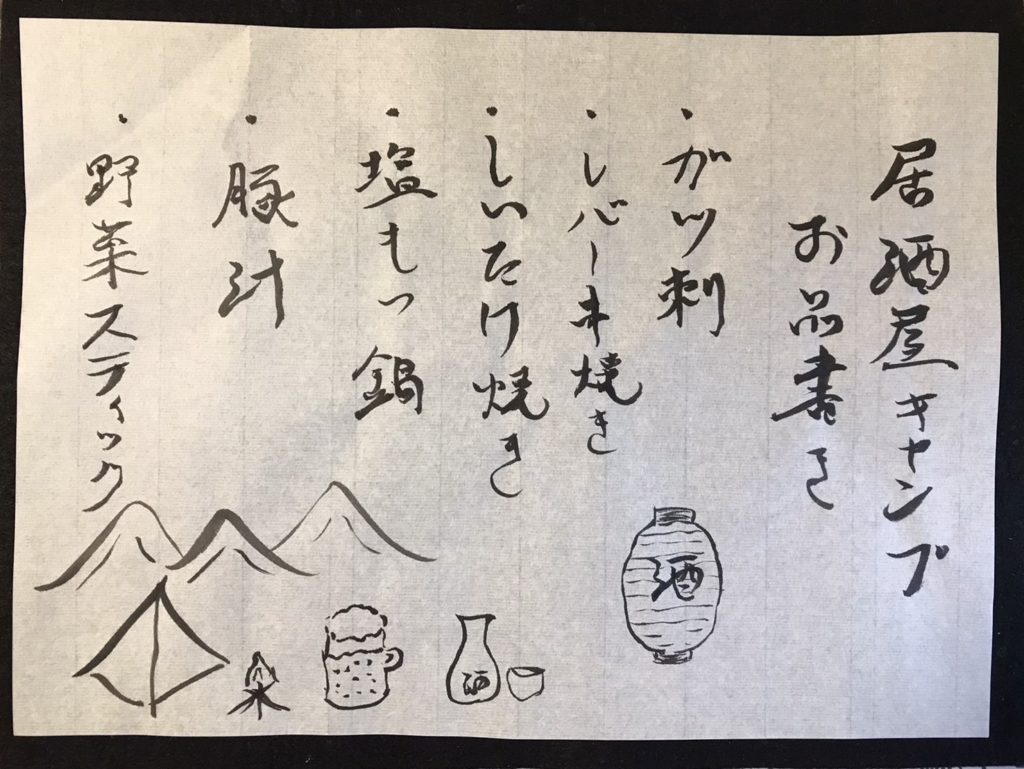 居酒屋キャンプ
お品書き
・ガツ刺
・レバーキ焼き
・しいたけ焼き
・塩もつ鍋
・豚汁
・野菜スティック
酒
酒